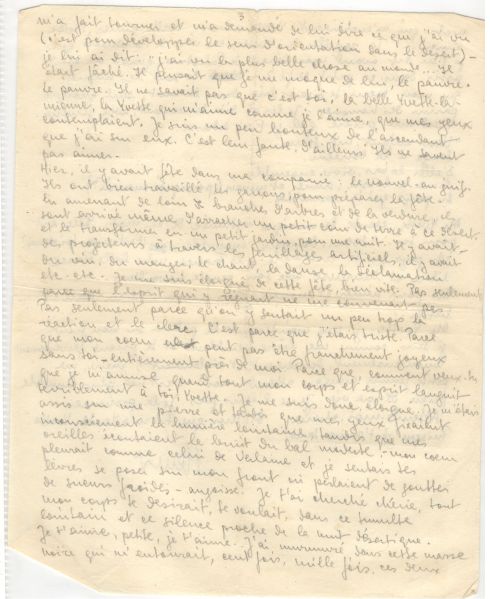 3
m'a fait tourner et m'a demandé de lui dire ce que j'ai vu
(c'est pour développer le sens d'orientation dans le désert) -
je lui ai dit: "j'ai vu la plus belle chose au monde... Il
était fâché. Il pensait que je me moque de lui, le pauvre.
Le pauvre. Il ne savait pas que c'est toi, la belle Yvette-la-
mienne, la Yvette qui m'aime comme je l'aime, que mes yeux
contemplaient. Je suis un peu honteux de l'ascendant
que j'ai sur eux. C'est leur faute, d'ailleurs. Ils ne savent
pas aimer.
Hier, il y avait fête dans ma compagnie: le nouvel-an juif.
Ils ont bien travaillé les garçons, pour préparer la fête.
En amenant de loin branches d'arbres et de la verdure, ils
sont arrivé même d'arracher un petit coin de terre à ce désert,
et le transformer en un petit jardin, pour une nuit. Il y avait
de, projecteurs à travers les feuillages artificiels, il y avait
du vin, du manger, le chant, la danse, la déclamation
etc. etc. Je me suis éloigné de cette fête, bien vite. Pas seulement
parce que l'esprit qui y régnant ne me convenait pas,
Pas seulement parce qu'on y sentait un peu trop la
réaction et le clere. C'est parce que j'étais triste. Parce
que mon coeur peut pas être franchement joyeux
sans toi - entièrement près de moi. Parce que comment veux-tu
que je m'amuse quand tout mon corps et esprit languit
terriblement à toi, Yvette. Je me suis donc éloigné. Je m'étais
assis sur une pierre et tandis que mes yeux fixaient
inconsciement la lumière lointaine, tandis que mes
oreilles écoutaient le bruit du bal modeste - mon coeur
pleurait comme celui de Verlaine et je sentais tes
lèvres se poser sur mon front où perlaient de gouttes
de sueurs froides - angoisse. Je t'ai cherché chérie, tout
mon corps te désirait, te voulait, dans ce tumulte
lointain et ce silence proche de la nuit désertique.
Je t'aime, petite, je t'aime. J'ai murmuré, dans cette masse
noire qui m'entourait, cent fois, mille fois, ces deux